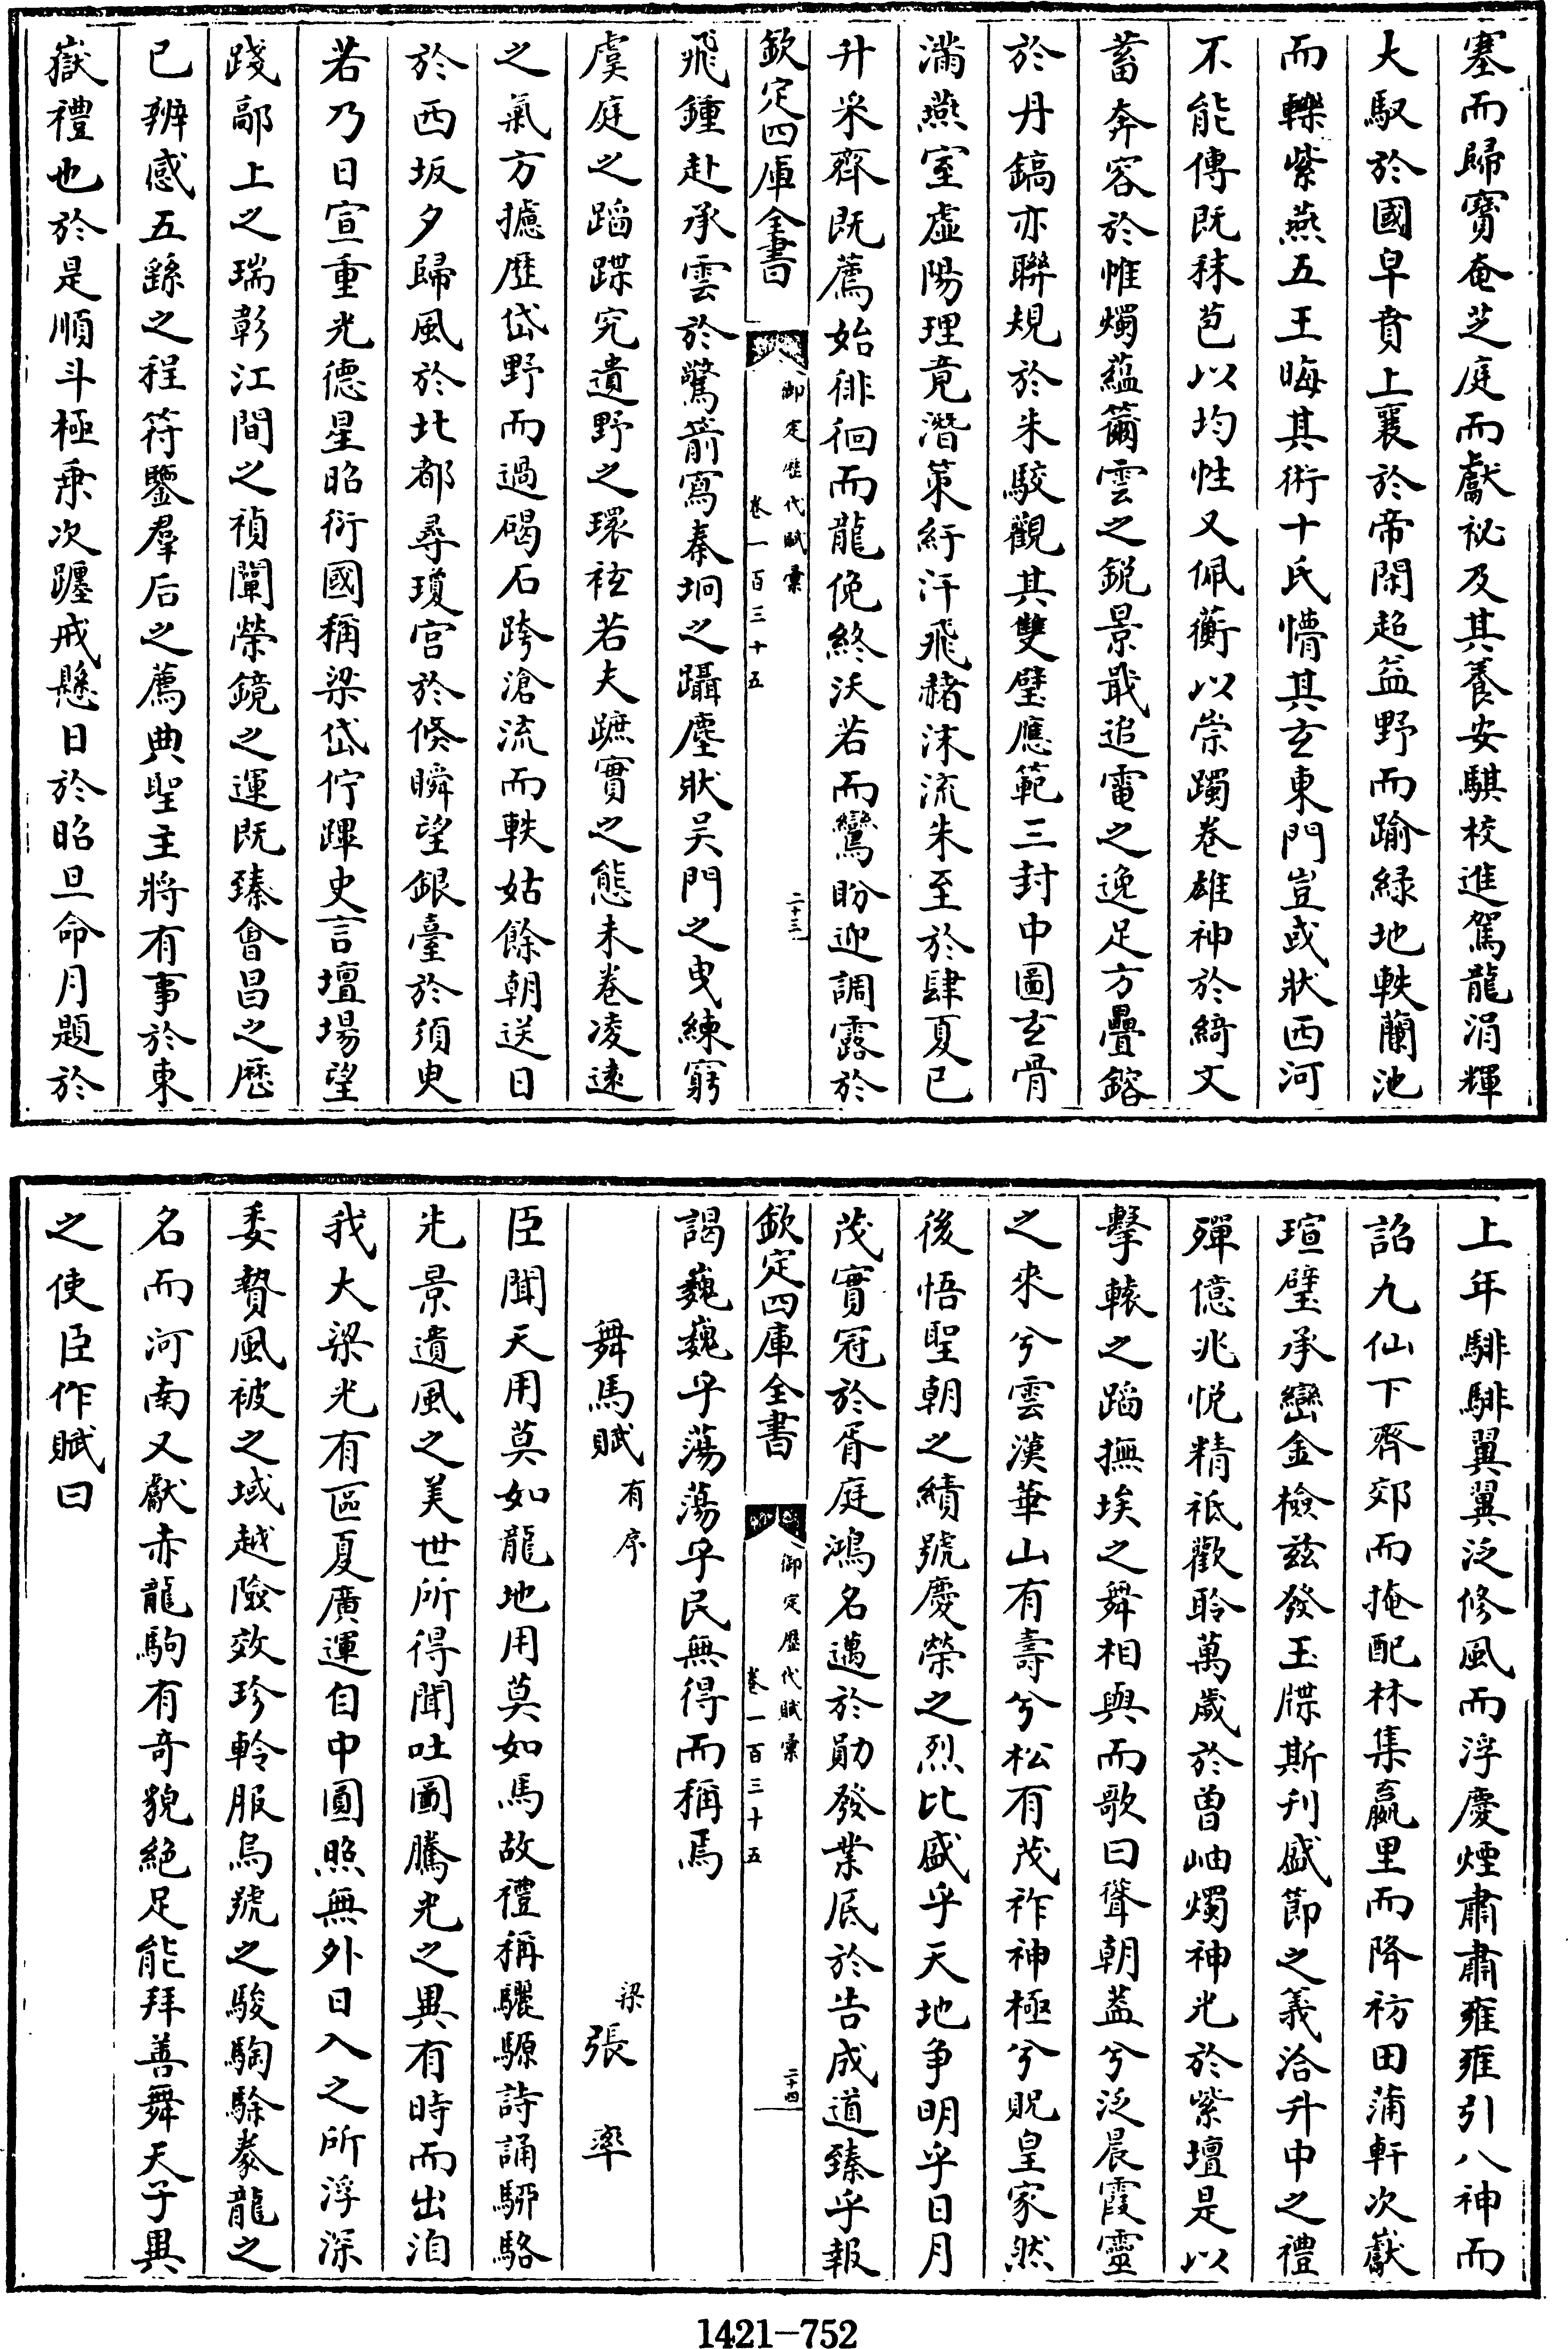 塞而歸寳奄芝庭而獻祕及其養安騏校進駕龍涓輝
大馭於國皁賁上襄於帝閑超益野而踰緑地軼蘭池
而轢紫燕五王晦其術十氏懵其玄東門豈或狀西河
不能傳既秣苞以均性又佩蘅以崇躅卷雄神於綺文
蓄奔容於帷燭蘊籋雲之鋭景戢追電之逸足方疊鎔
於丹鎬亦聯規於朱駮觀其雙璧應範三封中圖玄骨
滿燕室虛陽理竟潛策紆汗飛赭沫流朱至於肆夏已
升采齊既薦始徘徊而龍俛終沃若而鸞盼迎調露於
欽定四庫全書
御定歴代賦彙
卷一百三十五
二十三
飛鍾赴承雲於驚箭寫秦坰之躡塵狀吴門之曳練窮
虞庭之蹈蹀究遺野之環袨若夫蹠實之態未卷凌遠
之氣方攄歴岱野而過碣石跨滄流而軼姑餘朝送日
於西坂夕歸風於北都尋瓊宫於倐瞬望銀臺於須臾
若乃日宣重光德星昭衍國稱梁岱佇蹕史言壇場望
踐鄗上之瑞彰江間之禎闡榮鏡之運既臻會昌之歴
已辨感五繇之程符鑒羣后之薦典聖主將有事於東
嶽禮也於是順斗極乗次躔戒懸日於昭旦命月題於
上年騑騑翼翼泛修風而浮慶煙肅肅雍雍引八神而
詔九仙下齊郊而掩配林集嬴里而降祊田蒲軒次巘
瑄璧承巒金檢兹發玉牒斯刋盛節之義洽升中之禮
殫億兆悦精祗歡聆萬歲於曽岫燭神光於紫壇是以
擊轅之蹈撫埃之舞相與而歌曰聳朝葢兮泛晨霞靈
之來兮雲漢華山有壽兮松有茂祚神極兮貺皇家然
後悟聖朝之績號慶榮之烈比盛乎天地争明乎日月
茂實冠於胥庭鴻名邁於勛發業底於告成道臻乎報
欽定四庫全書
御定歴代賦彙
卷一百三十五
二十四
謁巍巍乎蕩蕩乎民無得而稱焉
舞馬賦 有序 梁 張 率
臣聞天用莫如龍地用莫如馬故禮稱驪騵詩誦駵駱
先景遺風之美世所得聞吐圖騰光之異有時而出洎
我大梁光有區夏廣運自中圓照無外日入之所浮深
委贄風被之域越險效珍軨服烏號之駿騊駼豢龍之
名而河南又獻赤龍駒有奇貌絶足能拜善舞天子異
之使臣作賦曰
1421-752